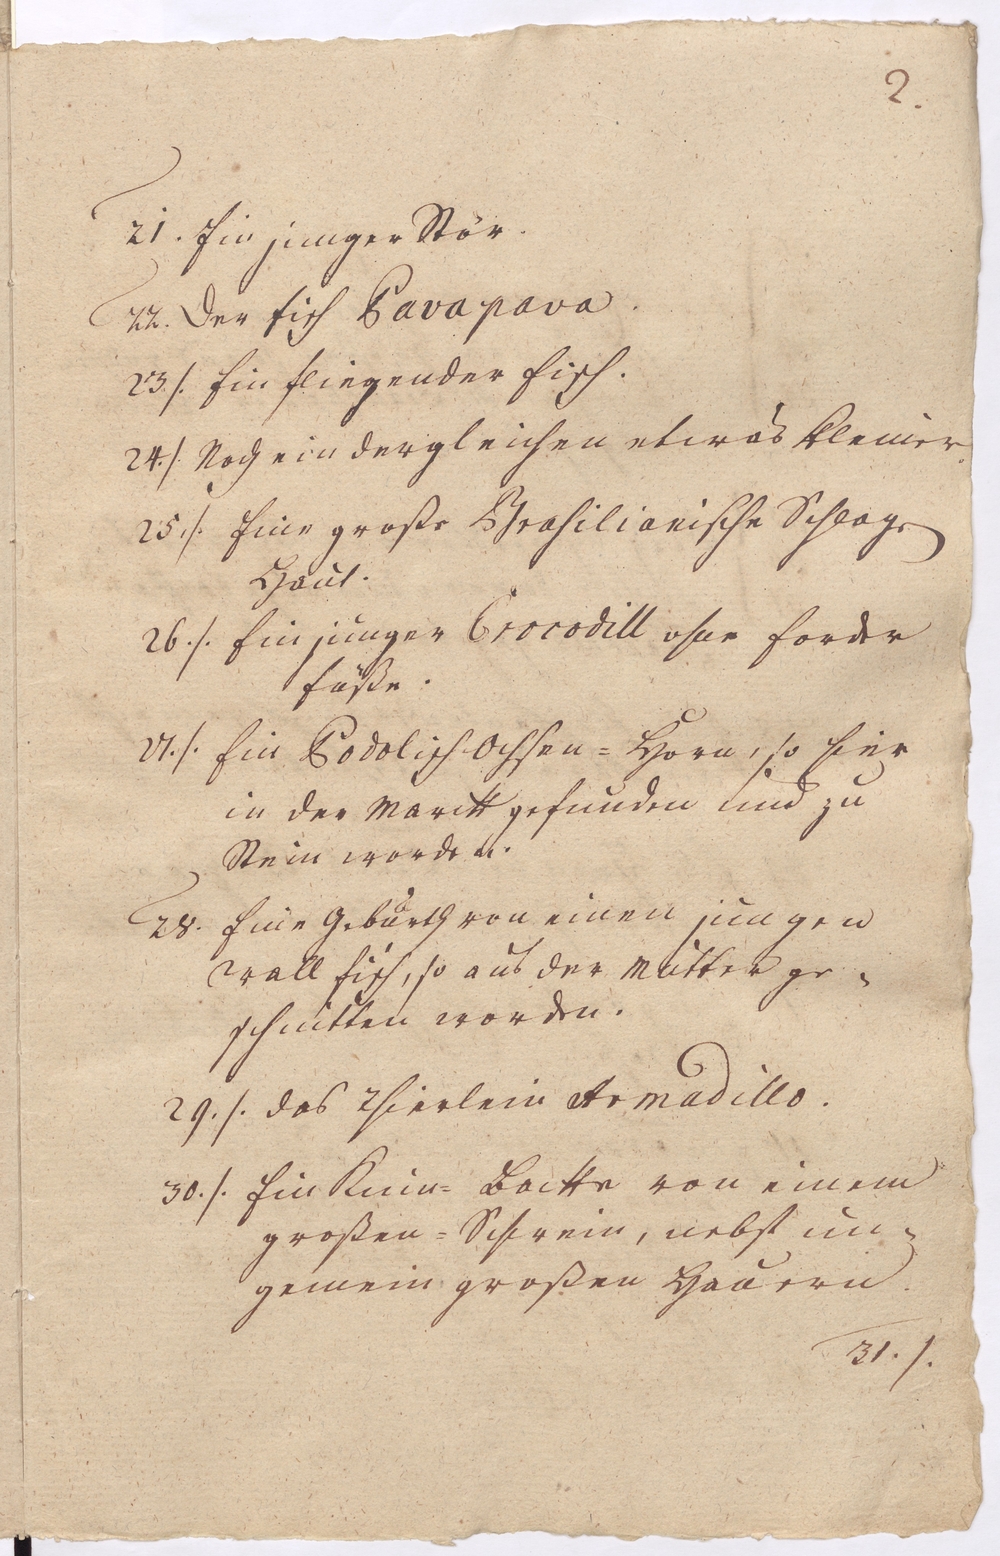 2.
21. Ein junger Stör.
22. Der Fisch Pava pava.
23./. Ein fliegender Fisch.
24./. Noch ein dergleichen etwas kleiner.
25./. Eine große Brasilianische Schlange
Haut.
26./. Ein junger Crocodill ohne forder
füße.
27./. Ein Podolisch Ochsen=Horn, so hier
in der Marck gefunden und zu
Stein worden.
28. Eine Geburth von einen jungen
Wall fisch, so aus der Mutter ge-
schnitten worden.
29./. das Thierlein Armadillo.
30./. Ein Kinn=Backe von einem
großen=Schwein, nebst un-
gemein großen Hauern.
31./.